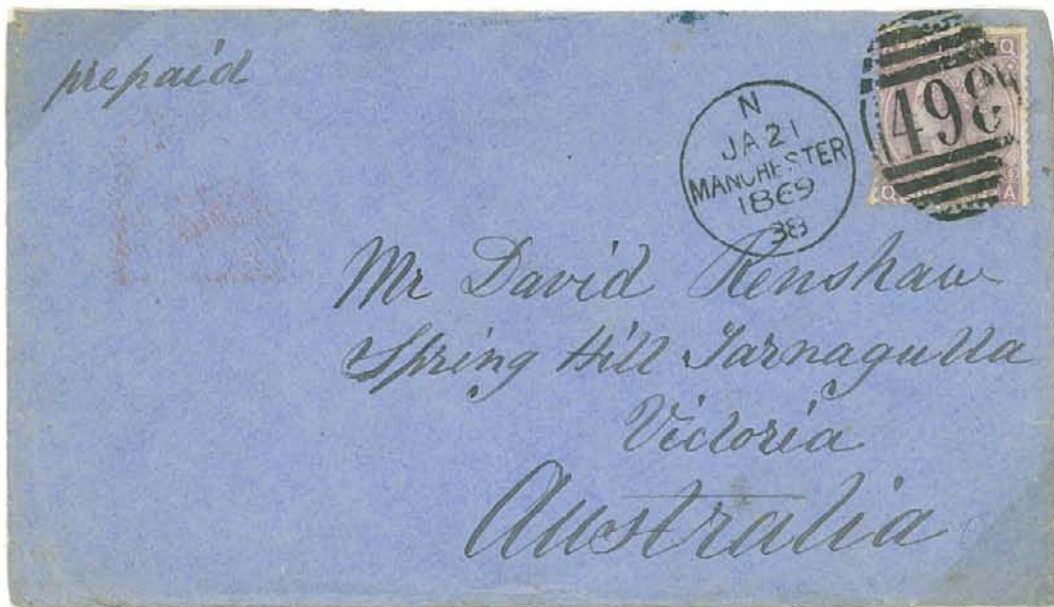 prepaid
N
JA 21
MANCHESTER
1869
38
498
Q
Q A
Mr David Renshaw
Spring Hill Tarnagulla
Victoria
Australia